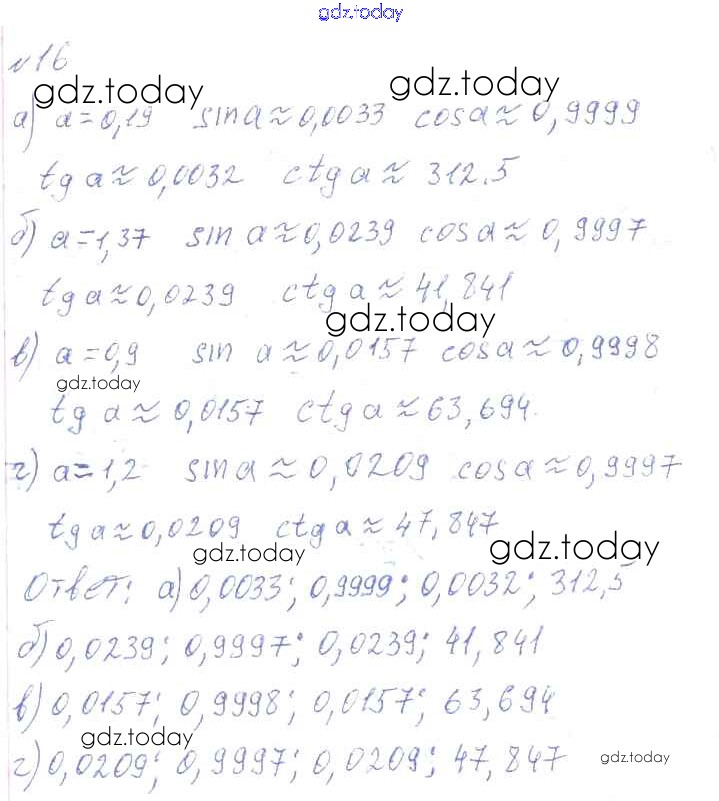 gdz.today
№16
gdz.today gdz.today
а) a=0,19 sin a≈0,0033 cos a≈0,9999
tg a≈0,0032 ctg a≈312.5
б) a=1,37 sin a≈0,0239 cos a≈0,9997
tg a≈0,0239 ctg a≈41,841
gdz.today
в) a=0,9 sin a≈0,0157 cos a≈0,9998
gdz.today
tg a≈0,0157 ctg a≈63,694.
г) a=1,2 sin a≈0,0209 cos a≈0,9997
tg a≈0,0209 ctg a≈47,847
gdz.today gdz.today
Ответ: а) 0,0033; 0,9999; 0,0032; 312,5
б) 0,0239; 0,9997; 0,0239; 41,841
в) 0,0157; 0,9998; 0,0157; 63,694
gdz.today
г) 0,0209; 0,9997; 0,0209; 47,847
gdz.today